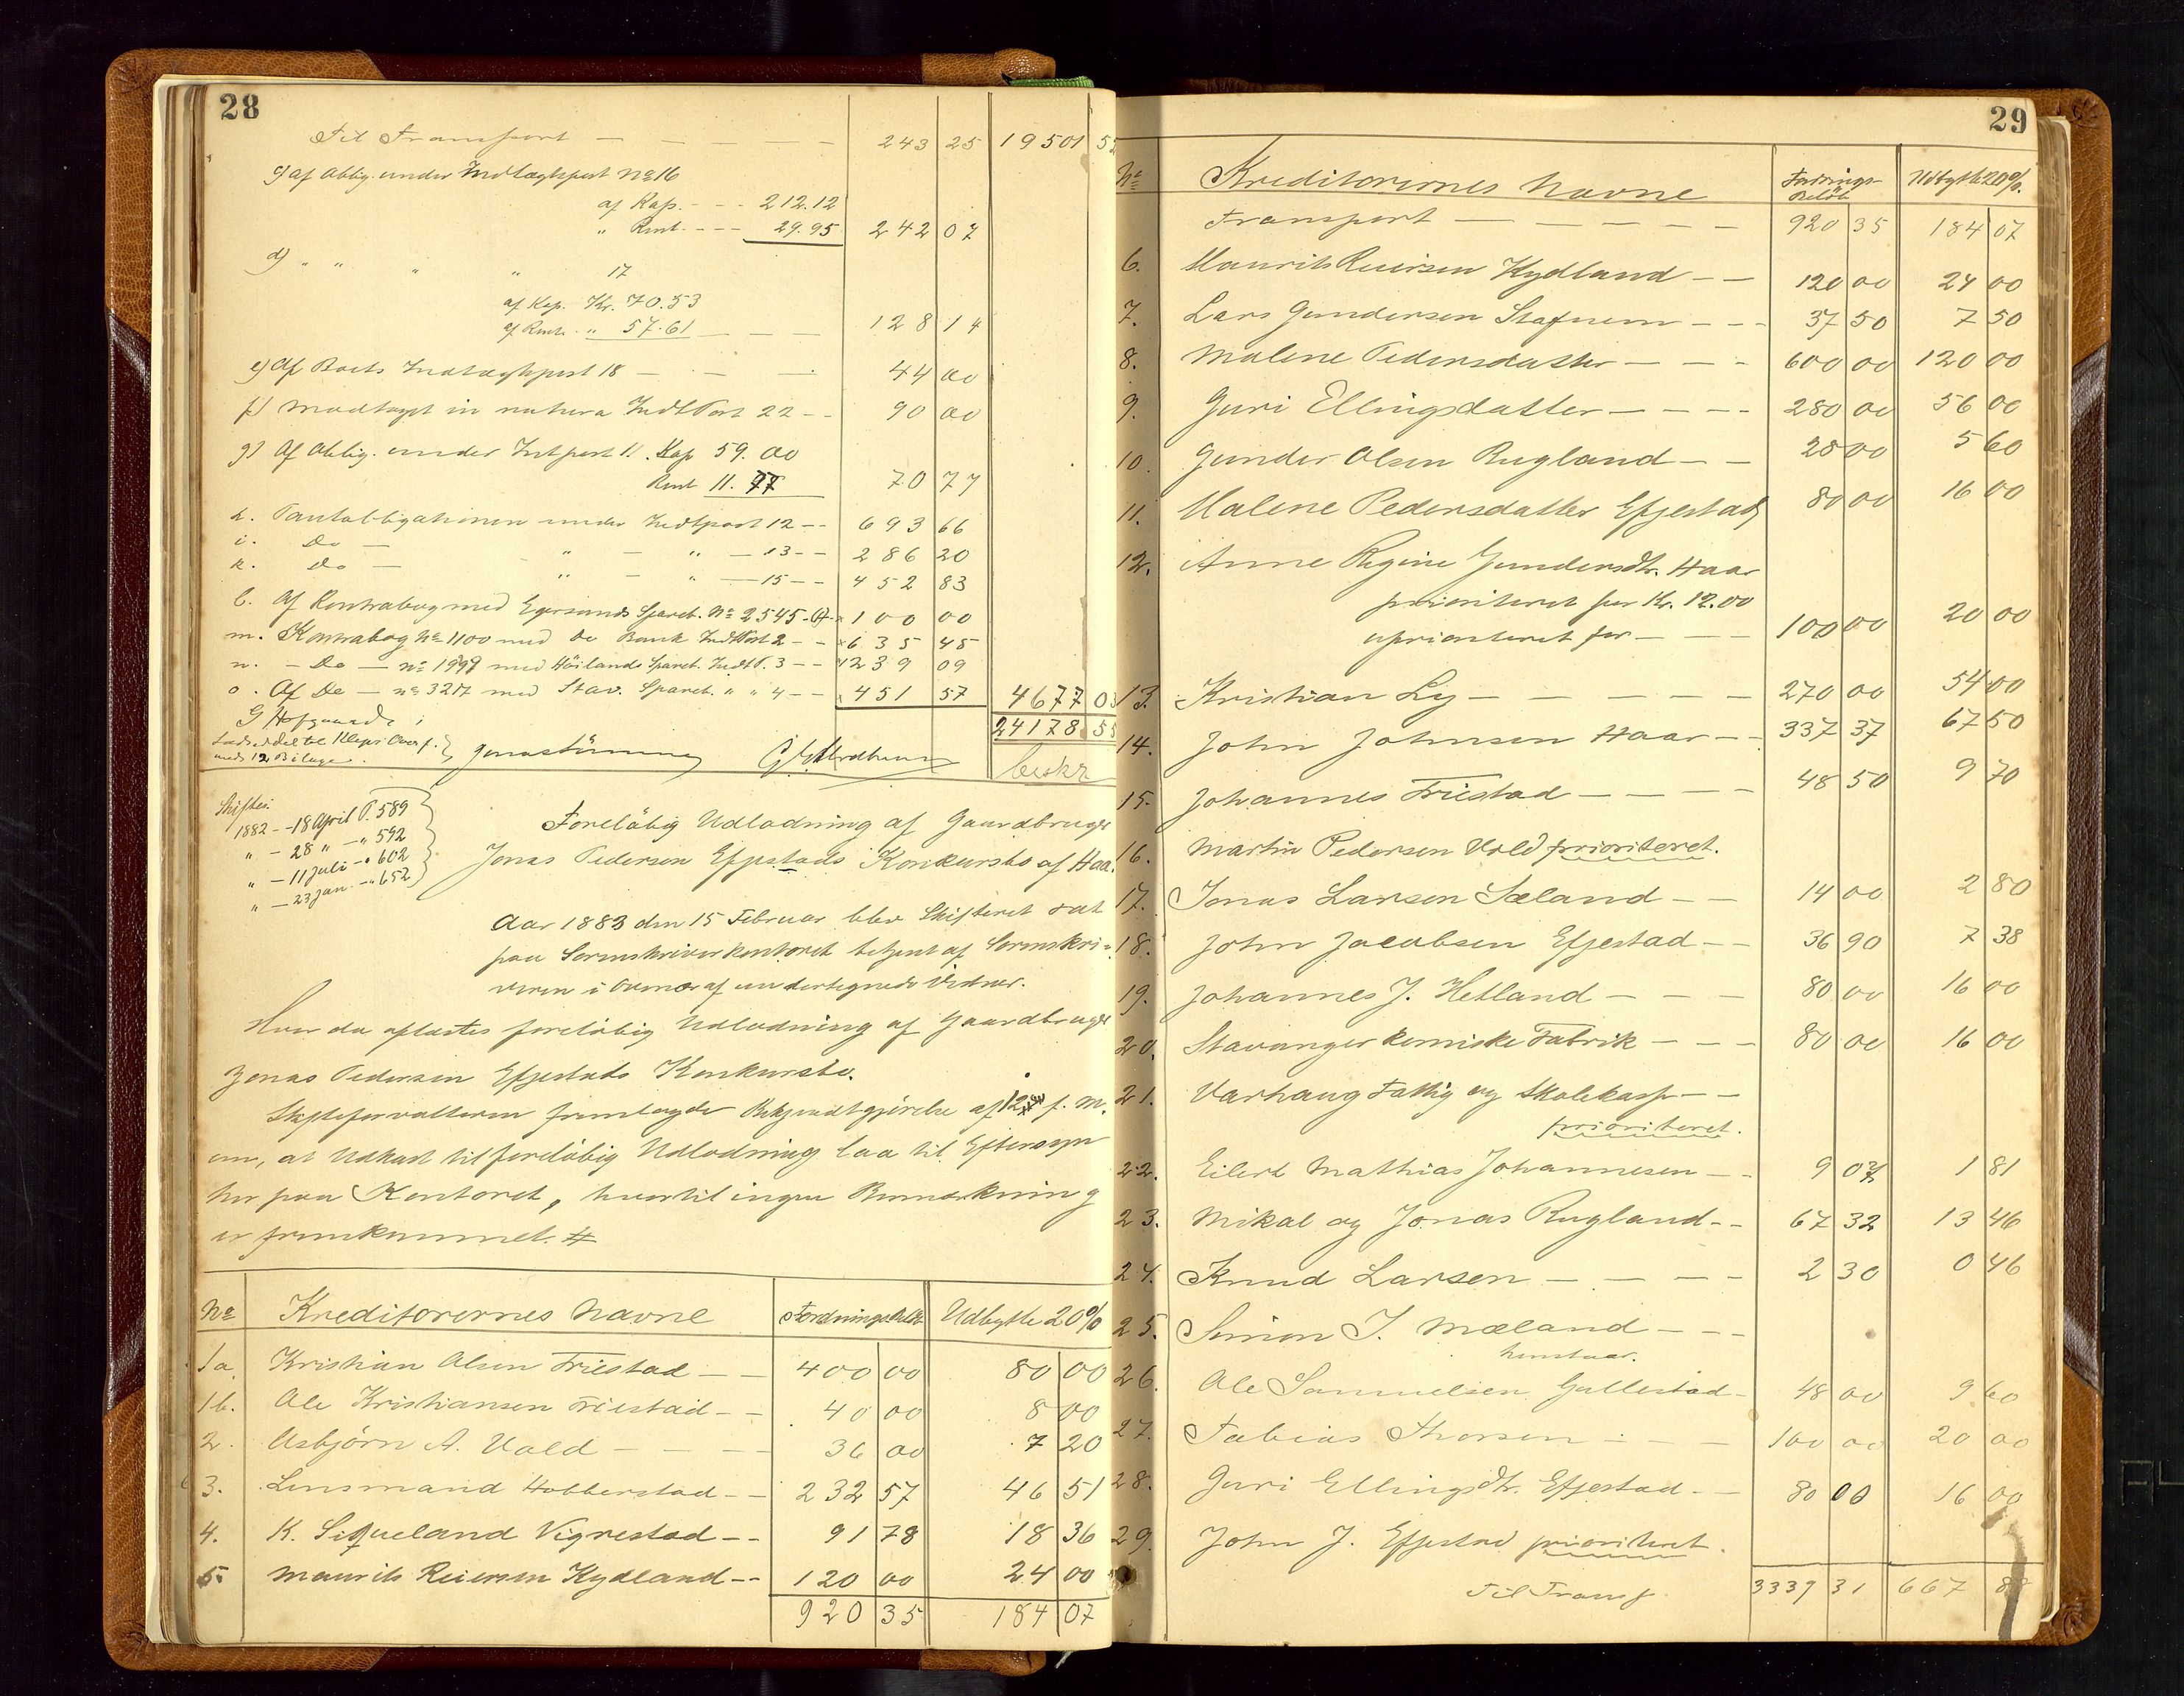 28
Til Transport — — — — — 243 25 19501 52
c) af Oblig. under Indtægtspost No 16
af Kap. - - - 212.12
" Rent. - - - 29.95 242 07
d) " " " " 17
af Kap. Kr. 70.53
af Rente. " 57.61 — — — 128 14
e) Af Boets Indtægtspost 18 — — — 44 00
f) Modtaget in natura Indt Post 22 - - 90 00
g) Af Oblig. under Indpost 11. Kap 59.00
Rent 11.77 70 77
h. Pantobligationen under Indtpost 12 - - 693 66
i. Do — " — " — 13 - - 286 20
k. Do — " — " — 15 - - 452 83
l. Af Kontrabog med Egersunds Spareb. No 2545 100 00
m. Kontrabog No 1100 med do Bank Indt Post 2 - - 635 45
n. - Do — No 1998 med Höilands Spareb. Indt P. 3 - - 1239 09
o. Af Do — No 3217 med Stav. Spareb. " " 4 - - 451 57 4677 03
24178 55
G Hofgaard i
med 12 Bilage.
beskr
Skiftes:
1882 - - 18 April P. 589
" - 28 " - " 592
" - 11 Juli - " 602
" - 23 Jan. - " 652
Foreløbig Udlodning af Gaardbruger
Jonas Pedersen Efjestads Konkursbo af Haa.
Aar 1883 den 15 Februar blev Skifteret sat
paa Sorenskriverkontoret betjent af Sorenskri=
veren i Overvær af undertegnede Vidner.
Hvor da aflæstes foreløbig Udlodning af Gaardbruger
Jonas Pedersen Efjestads Konkursbo.
Skifteforvalteren fremlagde Bekjendtgjørelse af 12 f. M.
om, at Udkast til foreløbig Udlodning laa til Eftersyn
her paa Kontoret, hvortil ingen Bemærkning
er fremkommet. #
No Kreditorernes Navne Fordringsbeløb Udbytte 20%
1a. Kristian Olsen Friestad — — 400 00 80 00
1b. Ole Kristiansen Friestad - - 40 00 8 00
2. Asbjörn A. Vold — — — — 36 00 7 20
3. Lensmand Hobberstad - - 232 57 46 51
4. K. Sigveland Vigrestad - - 91 78 18 36
5. Maurits Reiersen Kydland - - 120 00 24 00
920 35 184 07
29
No Kreditorernes Navne Fordrings Beløb Udbytte 20%.
Transport — — — — — 920 35 184 07
6. Maurits Reiersen Kydland — — 120 00 24 00
7. Lars Gundersen Stafnem - - - 37 50 7 50
8. Malene Pedersdatter — — - 600 00 120 00
9. Guri Ellingsdatter — — - - 280 00 56 00
10. Gunder Olsen Rugland — — 28 00 5 60
11. Malene Pedersdatter Efjestad 80 00 16 00
12. Anne Regine Gundersdtr. Haar
prioriteret for Kr. 12.00
uprioriteret for — — — 100 00 20 00
13. Kristian Ly — — — — — 270 00 54 00
14. John Johnsen Haar - - 337 37 67 50
15. Johannes Friestad — — — — 48 50 9 70
16. Martin Pedersen Vold prioriteret.
17. Jonas Larsen Sæland — — 14 00 2 80
18. John Jacobsen Efjestad - - 36 90 7 38
19. Johannes J. Hetland — — — 80 00 16 00
20. Stavanger kemiske Fabrik — — - 80 00 16 00
21. Varhaug Fattig og Skolekasse - -
prioriteret.
22. Eilert Mathias Johannesen — - 9 07 1 81
23. Mikal og Jonas Rugland - - 67 32 13 46
24. Knud Larsen — — — — 2 30 0 46
25. Simon J. Mæland — — -
henstaar.
26. Ole Samuelsen Gullestad - 48 00 9 60
27. Tobias Thorsen — — — 100 00 20 00
28. Guri Ellingsdtr. Efjestad - - 80 00 16 00
29. John J. Efjestad prioriteret.
Til Transp. 3339 31 667 88